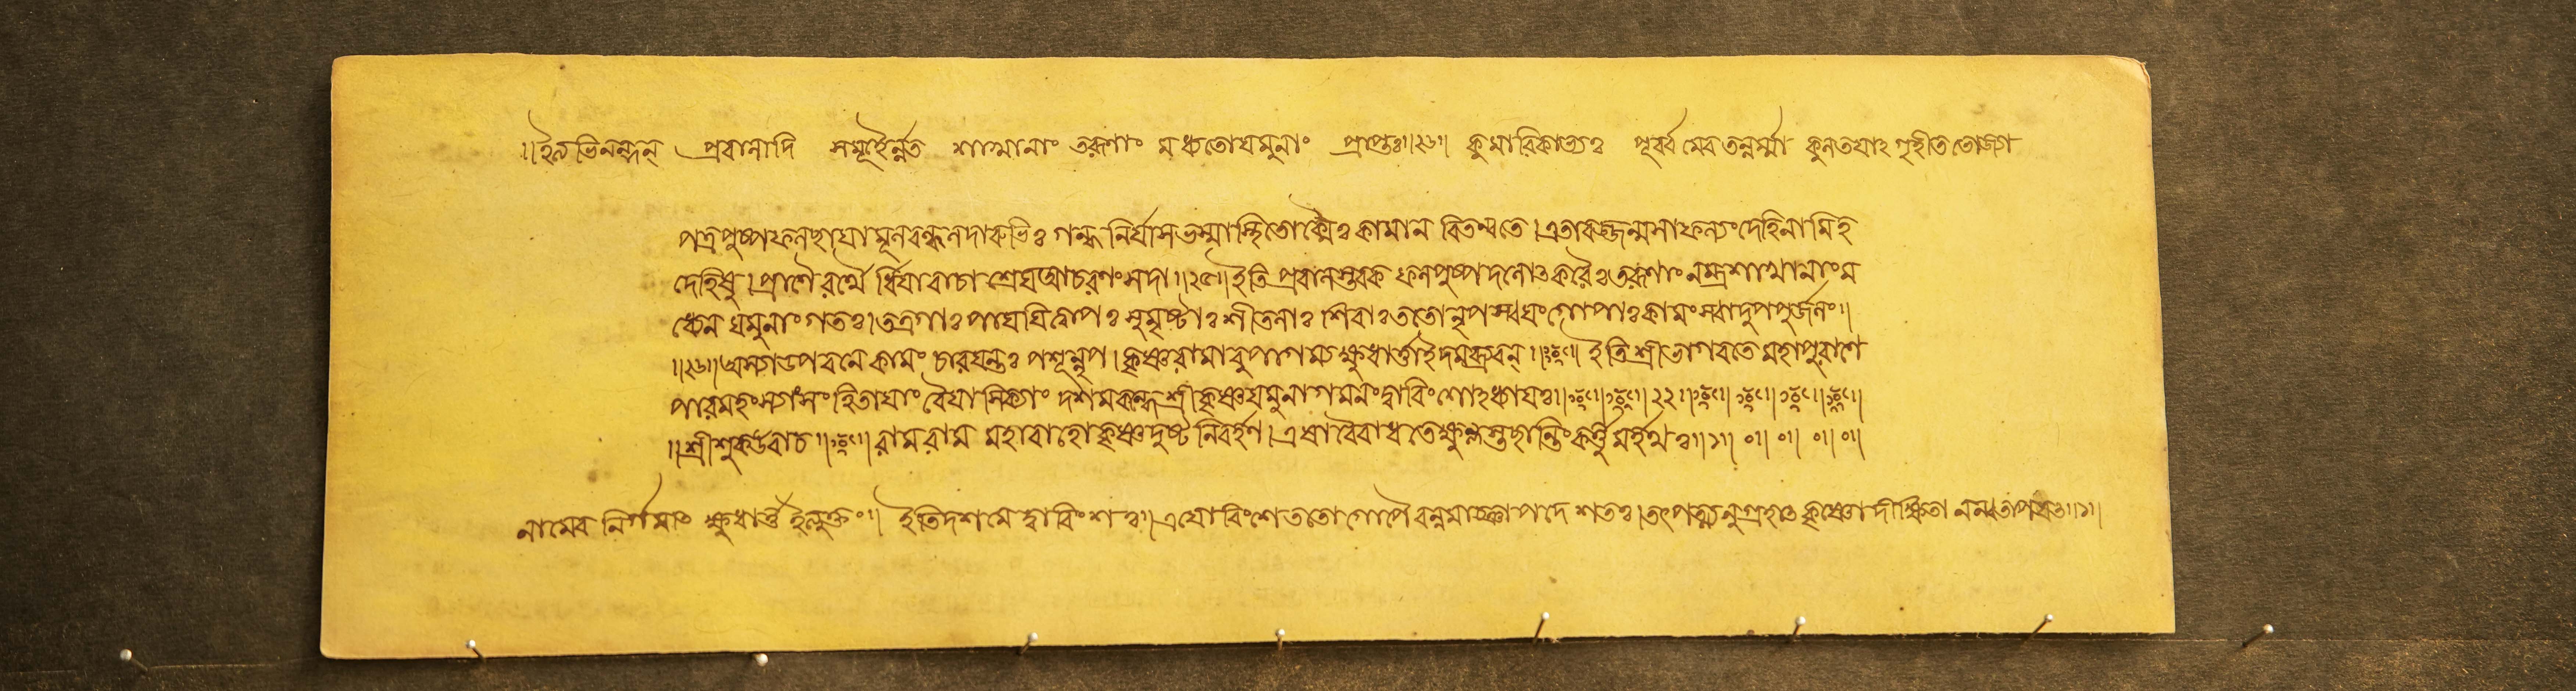 ॥ইত্যভিনন্দন্ প্রবালাদি সমূহৈর্ন্নত শাখানাং তরূণাং মধ্যতোযমুনাং প্রাপ্তঃ॥২৬॥ কুমারিকাভ্যঃ পূর্ব্বমেব তন্নর্ম্মা কুলতযাঽ গৃহীত ভোজ্যা
পত্রপুষ্পফলছাযামূলবল্কলদারুভিঃ গন্ধনির্যাসভস্মাস্থিতোক্মৈঃকামান বিতন্বতে।এতাবজ্জন্মসাফল্যংদেহিনামিহ
দেহিষু।প্রাণৈরর্থৈর্ধিযাবাচা শ্রেযআচরণংসদা॥২৫॥ইতি প্রবালস্তবক ফলপুষ্পদলোৎকরৈঃতরূণাংনম্রশাখানাংম
ধ্যেন যমুনাংগতঃ।তত্রগাঃ পাযযিত্বাপঃ সুমৃষ্টাঃ শীতলাঃ শিবাঃততোনৃপস্বযংগোপাঃকামংস্বাদুপপুর্জলং॥
॥২৬॥অস্যাউপবনে কামং চারযন্তঃ পশূন্নৃপ।কৃষ্ণরামাবুপাগম্যক্ষুধার্ত্তাইদমব্রুবন্॥ইতিশ্রীভাগবতেমহাপুরাণে
পারমহংস্যাংসংহিতাযাং বৈযাসিক্যাং দশমস্কন্ধেশ্রীকৃষ্ণযমুনাগমনংদ্বাবিংশোঽধ্যাযঃ॥২২॥
॥শ্রীশুকউবাচ॥রামরাম মহাবাহোকৃষ্ণদুষ্টনিবর্হণ।এষাবৈবাধতেক্ষুন্নস্তছান্তিংকর্ত্তুমর্হথঃ॥১॥ ০॥ ০॥ ০॥ ০॥
নামেব নির্গমাৎ ক্ষুধার্ত্তইত্যুক্তং॥ ইতিদশমে দ্বাবিংশঃ॥এযোবিংশেততোগোপৈরন্নমাজ্ঞাপদেশতঃ।তৎপত্ন্যনুগ্রহৎকৃষ্ণোদীক্ষিতা নন্বতাপযৎ॥১॥